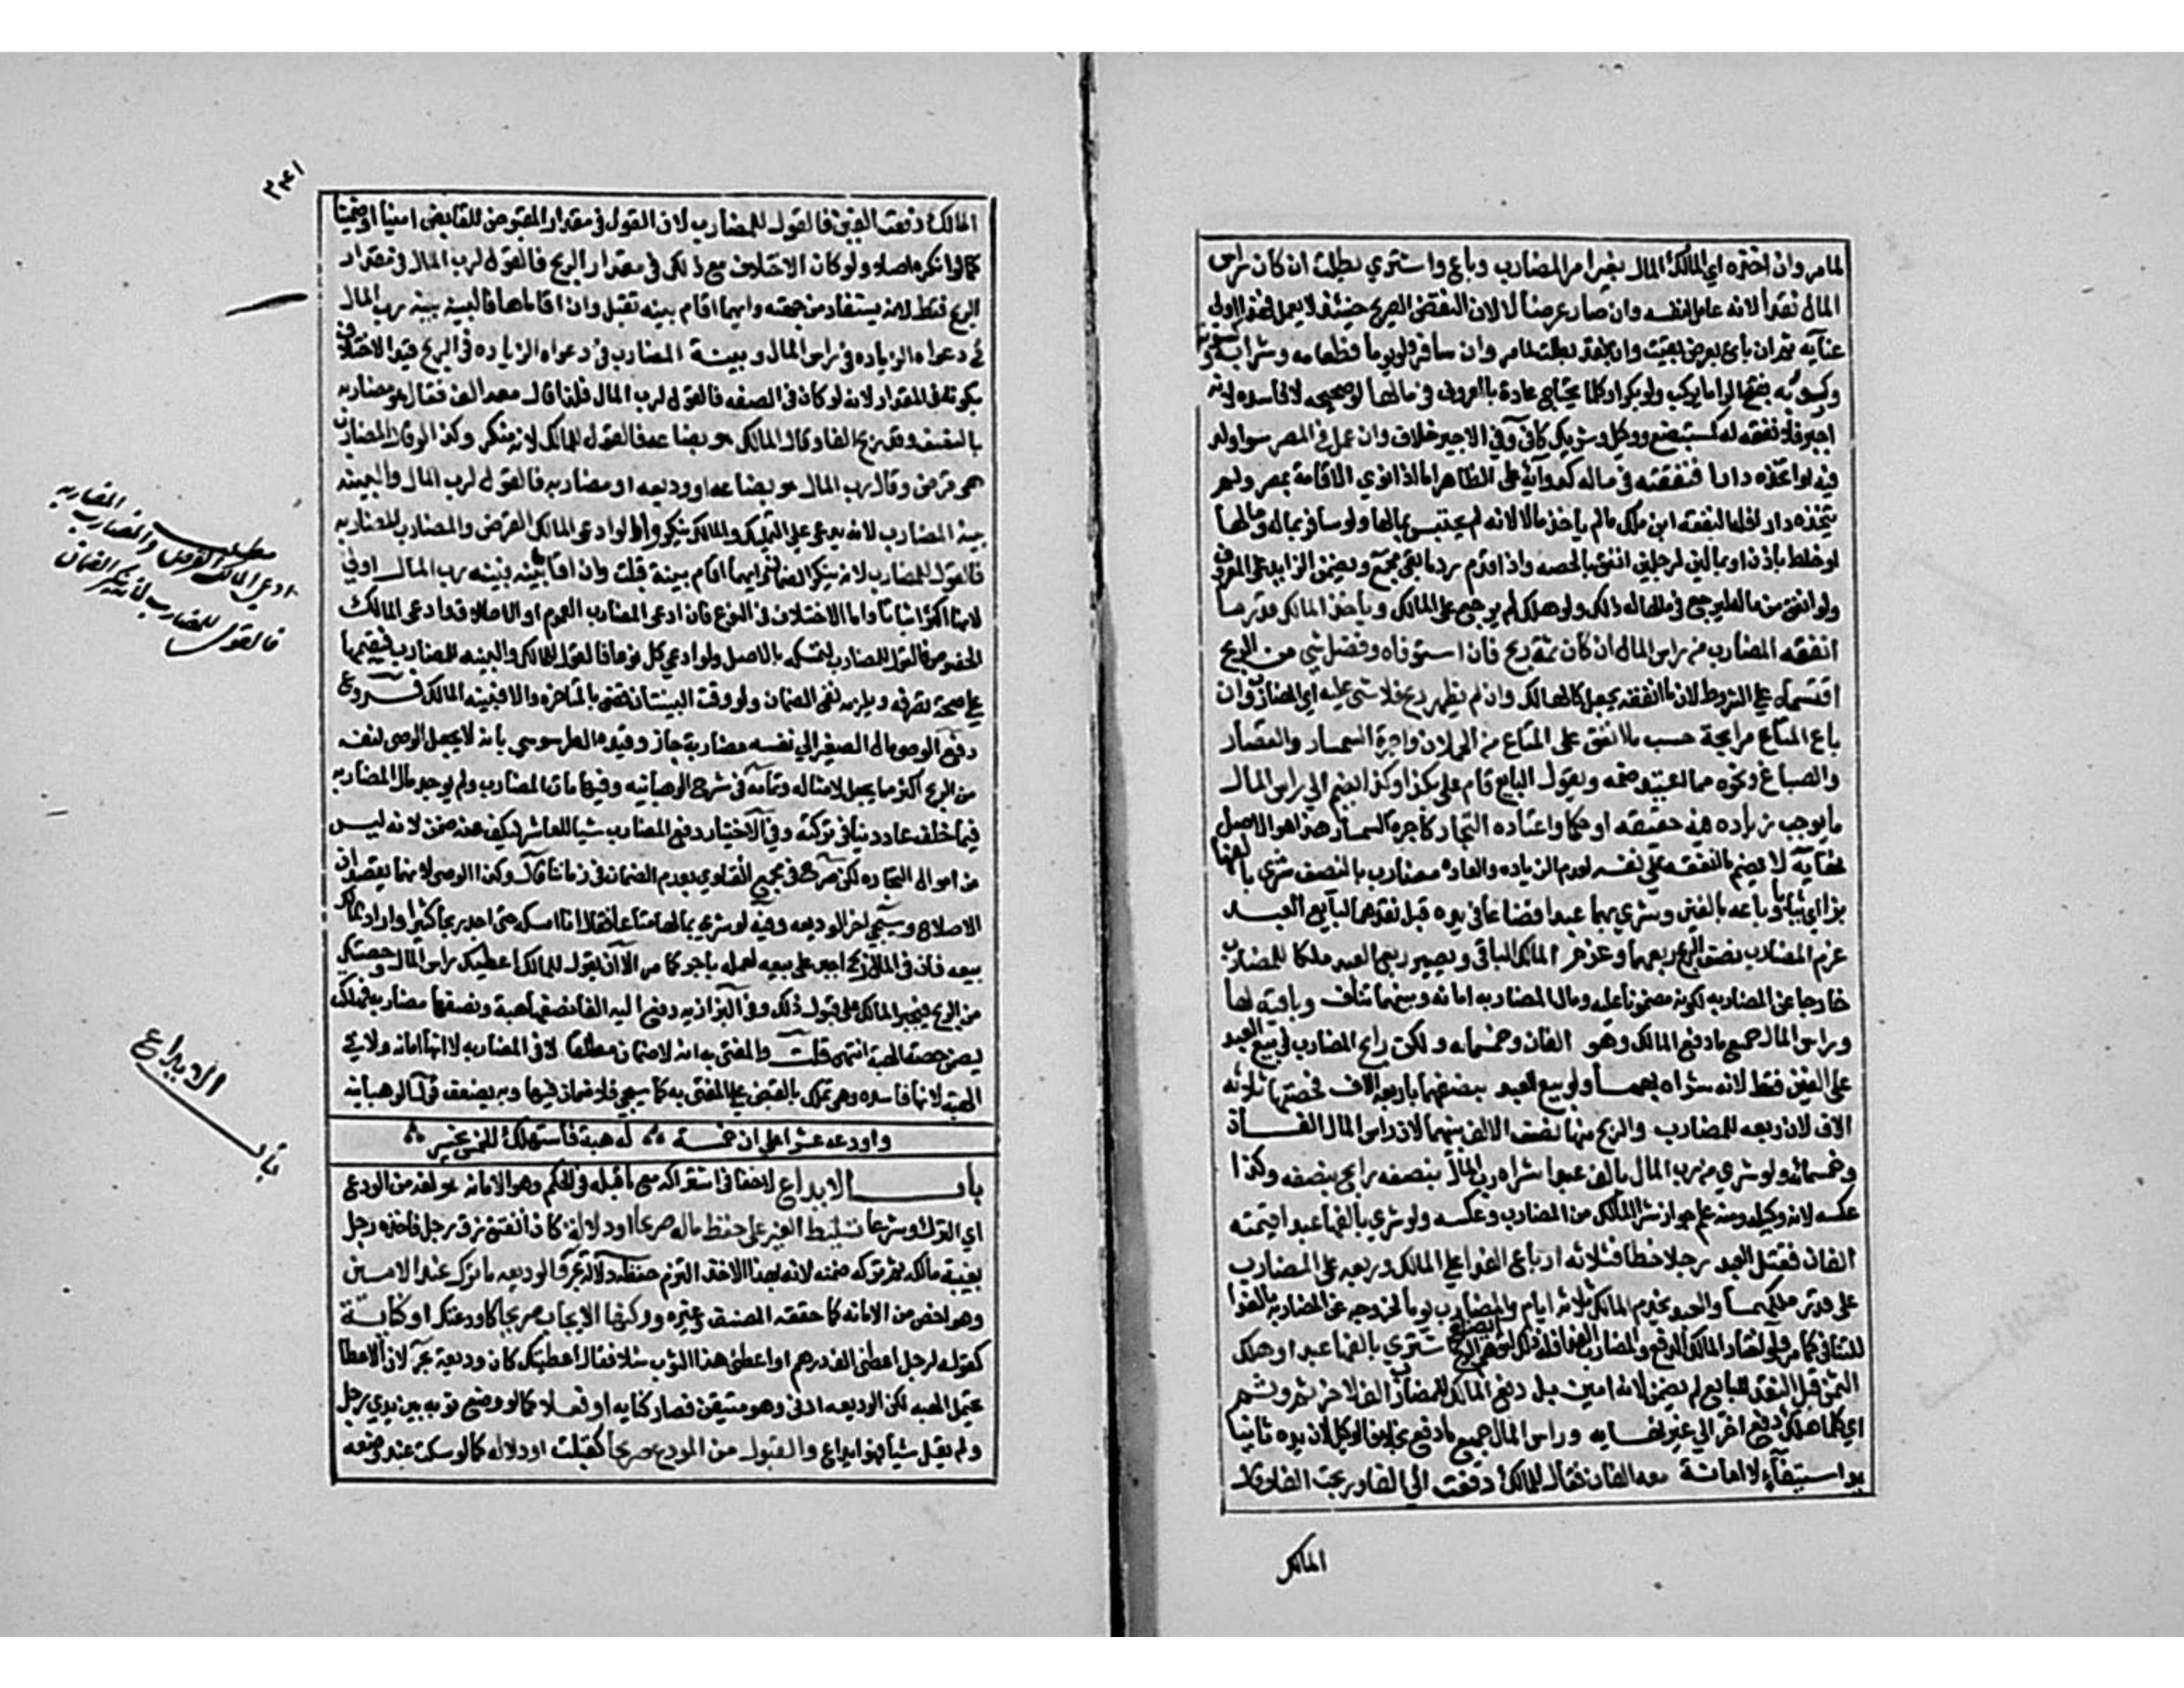 لمامر وان اخذه اي المالك المال بغير امر المضارب وباع واشتري بطلت ان كان راس
المال نقدا لانه عامل لنفسه وان صار عرضا لا لان النقض الصريح حينئذ لا يعمل فهذا اولي
عنايه ثم ان باع بعرض بقيت وان بنقد بطلت لمامر وان سافر ولو يوما فطعامه وشرابه
وكسوته وركوبه بفتح الرا ما يركب ولو بكرا وكل ما يحتاجه عادة بالمعروف في مالها لو صحيحه لا فاسده لانه
اجير فلا نفقه له كمستبضع ووكيل وشريك كافي وفي الاخير خلاف وان عمل في المصر سوا ولد
فيه او اتخذه دارا فنفقته في ماله كدوايه علي الظاهر اما لو نوي الاقامة بمصر ولم
يتخذه دارا فله النفقه ابن ملك مالم ياخذ مالا لانه لم يحتبس بمالها ولو سافر بماله ومالها
او خلط باذن او بمالين لرجلين انفق بالحصه واذا قدم رد ما بقي مجمع ويضمن الزايد علي المعروف
ولو انفق من ماله ليرجع في مالها له ذلك ولو هلك لم يرجع علي المالك وياخذ المالك قدر ما
انفقه المضارب من راس المال ان كان ثمة ربح فان استوفاه وفضل شي من الربح
اقتسماه علي الشرط لان ما انفقه يجعل كالهالك وان لم يظهر ربح فلا شي عليه اي المضارب وان
باع المتاع مرابحة حسب ما انفق علي المتاع من الحملان واجرة السمسار والقصار
والصباغ ونحوه مما اعتيد ضمه ويقول البايع قام علي بكذا وكذا يضم الي راس المال
ما يوجب زياده فيه حقيقه او حكما او اعتاده التجار كاجرة السمسار هذا هو الاصل
نهايه لا يضم ما انفقه علي نفسه لعدم الزياده والعاده مضارب بالنصف شري بالفها
بزا اي ثيابا وباعه بالفين وشري بهما عبدا فضاعا في يده قبل نقدهما لبايع العبد
غرم المضارب نصف الربح ربعهما وغرم المالك الباقي ويصير ربع العبد ملكا للمضارب
خارجا عن المضاربه لكونه مضمونا عليه ومال المضاربه امانه وبينهما تناف وباقيه لها
وراس المال جميع ما دفع المالك وهو الفان وخمسمايه ولكن رابح المضارب في بيع العبد
علي الفين فقط لانه شراه بهما ولو بيع العبد بضعفهما باربعه الاف فحصتها ثلاثه
الاف لان ربعه للمضارب والربح منها نصف الالف بينهما لان راس المال الفان
وخمسمائه ولو شري من رب المال بالف عبدا شراه رب المال بنصفه رابح بنصفه وكذا
عكسه لانه وكيله ومنه علم جواز شرا المالك من المضارب وعكسه ولو شري بالفها عبدا قيمته
الفان فقتل العبد رجلا خطا فثلاثه ارباع الفدا علي المالك وربعه علي المضارب
علي قدر ملكهما والعبد يخدم المالك ثلاثه ايام والمضارب يوما لخروجه عن المضاربه بالفدا
للتنافي كما مر ولو اختار المالك الدفع والمضارب الفدا فله ذلك لتوهم الربح اشتري بالفها عبدا وهلك
الثمن قبل النقد للبايع لم يضمن لانه امين بل دفع المالك للمضارب الفا اخر ثم وثم
اي كلما هلك دفع اخر الي غير نهايه وراس المال جميع ما دفع بخلاف الوكيل لان يده ثانيا
يد استيفاء لا امانة معه الفان فقال للمالك دفعت الي الفا وربحت الفا وقال
المالك
٣٤١
المالك دفعت الفين فالقول للمضارب لان القول في مقدار المقبوض للقابض امينا او ضمينا
كما لو انكره اصلا ولو كان الاختلاف مع ذلك في مقدار الربح فالقول لرب المال في مقدار
الربح فقط لانه يستفاد من جهته وايهما اقام بينه تقبل وان اقاماها فالبينه بينه رب المال
في دعواه الزياده في راس المال وبينة المضارب في دعواه الزياده في الربح قيد الاختلاف
بكونه في المقدار لانه لو كان في الصفه فالقول لرب المال فلذا قال معه الف فقال هو مضاربه
بالنصف وقد ربح الفا وقال المالك هو بضاعه فالقول للمالك لانه منكر وكذا لو قال المضارب
هي قرض وقال رب المال هو بضاعه او وديعه او مضاربه فالقول لرب المال والبينه
بينة المضارب لانه يدعي عليه التمليك والمالك ينكر واما لو ادعي المالك القرض والمضارب المضاربه
فالقول للمضارب لانه ينكر الضمان وايهما اقام بينة قبلت وان اقاما بينه فبينه رب المال اولي
لانها اكثر اثباتا واما الاختلاف في النوع فان ادعي المضارب العموم او الاطلاق وادعي المالك
الخصوص فالقول للمضارب لتمسكه بالاصل ولو ادعي كل نوعا فالقول للمالك والبينه للمضارب فيقيمها
علي صحة تصرفه ويلزمه نفي الضمان ولو وقتت البينتان قضي بالمتاخره والا فبينه المالك فروع
دفع الوصي مال الصغير الي نفسه مضاربة جاز وقيده الطرسوسي بان لا يجعل الوصي لنفسه
من الربح اكثر مما يجعل لامثاله وتمامه في شرح الوهبانيه وفيها مات المضارب ولم يوجد مال المضاربه
فيما خلف عاد دينا في تركته وفي الاختيار دفع المضارب شيا للعاشر ليكف عنه ضمن لانه ليس
من امور التجاره لكن صرح في مجمع الفتاوي بعدم الضمان في زماننا قال وكذا الوصي لانهما يقصدان
الاصلاح وسيجي اخر الوديعه وفيه لو شري بمالها متاعا فقال انا امسكه حتي اجد ربحا كثيرا واراد المالك
بيعه فان في المال ربح اجبر علي بيعه لعمله باجر كما مر الا ان يقول للمالك اعطيك راس المال وحصتك
من الربح فيجبر المالك علي قبول ذلك وفي البزازيه دفع اليه الفا نصفها هبة ونصفها مضاربه فهلكت
يضمن حصة الهبة انتهي قلت والمفتي به انه لا ضمان مطلقا لا في المضاربه لانها امانه ولا في
الهبة لانها فاسده وهي تملك بالقبض علي المفتي به كما سيجي فلا ضمان فيها وبه يضعف قول الوهبانيه
واودعه عشرا علي ان خمسة له هبة فاستهلك الخمس يخسر
باب الايداع لا خفا في اشتراكه مع ما قبله في الحكم وهو الامانه هو لغة من الودع
اي الترك وشرعا تسليط الغير علي حفظ ماله صريحا او دلالة كان انفتق زق رجل فاخذه رجل
بغيبة مالكه ثم تركه ضمن لانه بهذا الاخذ التزم حفظه دلالة بحر والوديعه ما تترك عند الامين
وهو اخص من الامانه كما حققه المصنف وغيره وركنها الايجاب صريحا كاودعتك او كناية
كقوله لرجل اعطني الف درهم او اعطني هذا الثوب مثلا فقال اعطيتك كان وديعة بحر لان الاعطا
يحتمل الهبه لكن الوديعه ادني وهو متيقن فصار كنايه او فعلا كما لو وضع ثوبه بين يدي رجل
ولم يقل شيا فهو ايداع والقبول من المودع صريحا كقبلت او دلاله كما لو سكت عند وضعه
مطلب
ادعي المالك القرض والمضارب المضاربه
فالقول للمضارب لانه ينكر الضمان
باب
الايداع